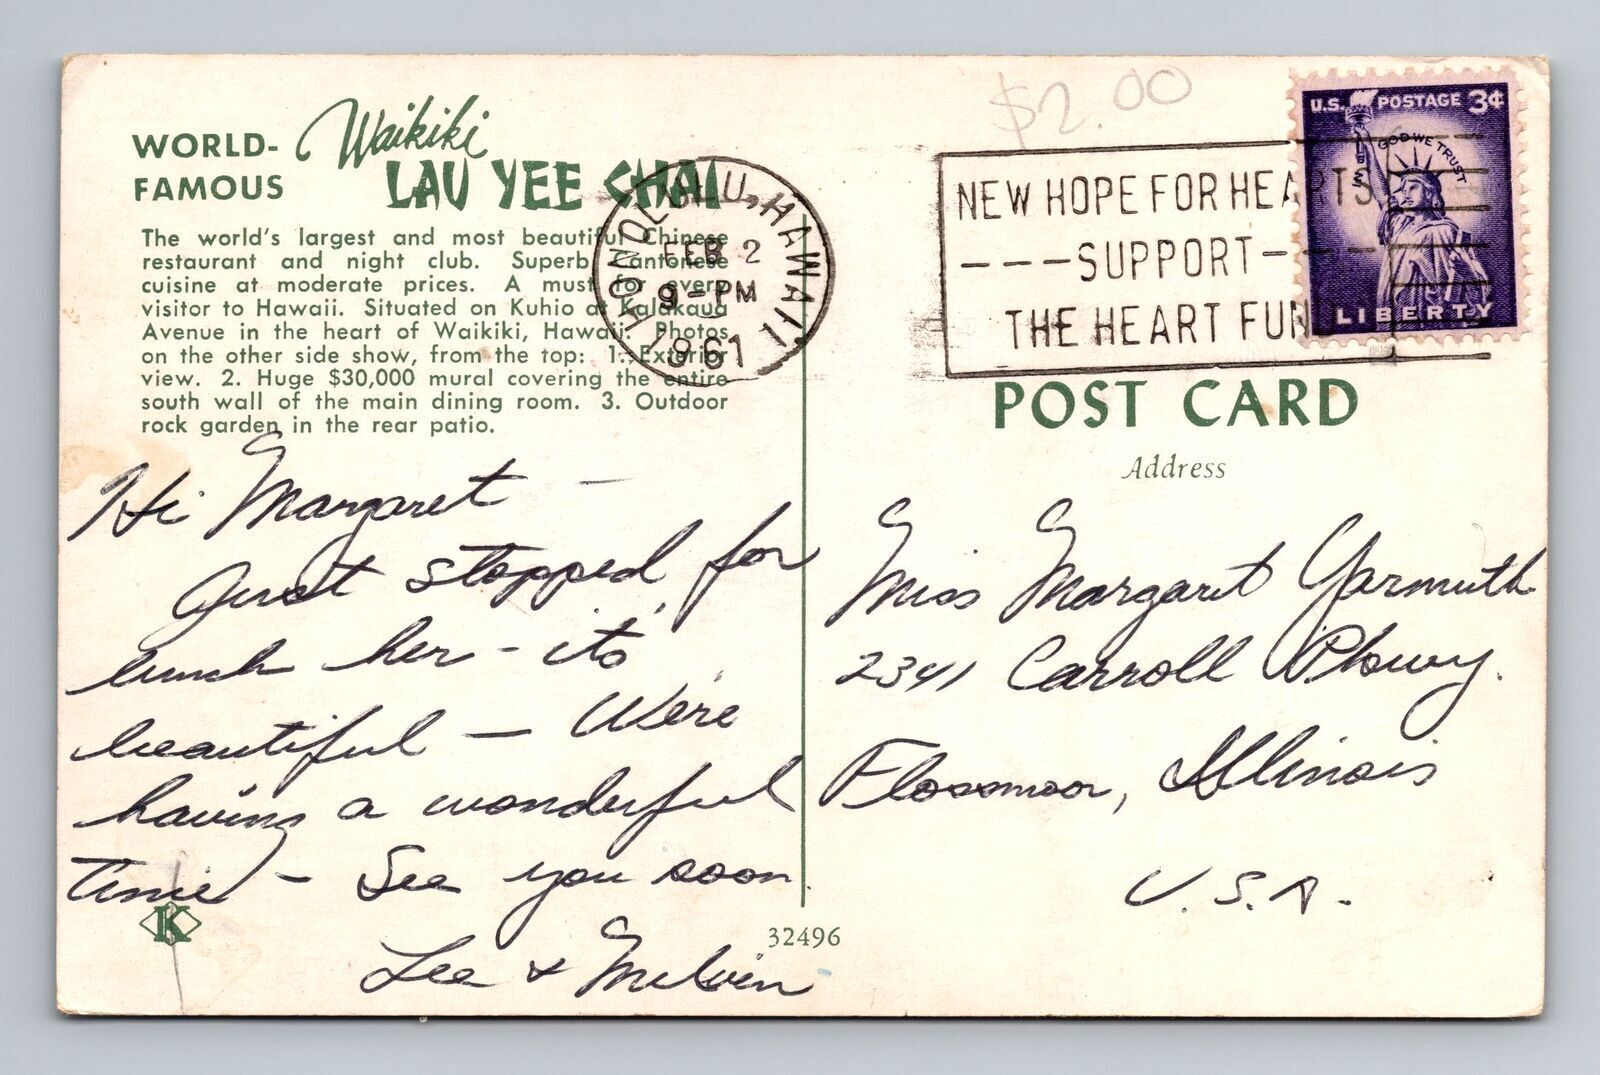 $2.00
WORLD- Waikiki
FAMOUS LAU YEE CHAI
The world's largest and most beautiful Chinese
restaurant and night club. Superb Cantonese
cuisine at moderate prices. A must for every
visitor to Hawaii. Situated on Kuhio at Kalakaua
Avenue in the heart of Waikiki, Hawaii. Photos
on the other side show, from the top: 1. Exterior
view. 2. Huge $30,000 mural covering the entire
south wall of the main dining room. 3. Outdoor
rock garden in the rear patio.
HONOLULU, HAWAII
FEB 2
9-PM
1961
NEW HOPE FOR HEARTS
---SUPPORT---
THE HEART FUN
U.S. POSTAGE 3¢
IN GOD WE TRUST
LIBERTY
POST CARD
Address
Hi Margaret -
Just stopped for
lunch her - its
beautiful - We're
having a wonderful
time - See you soon.
Lee & Melvin
K
32496
Miss Margaret Yarmuth
2341 Carroll Pkwy.
Flossmoor, Illinois
U.S.A.